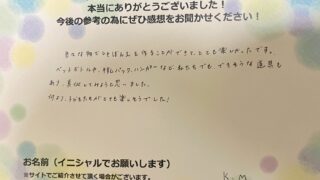 本当にありがとうございました！
今後の参考の為にぜひ感想をお聞かせください！
色々な物でおもちゃを作ることができて、とても楽しかったです。
ペットボトルや、牛乳パック、ハンガーなど、私たちでも、できそうな道具も
あり、真似してみようと思いました。
何より、子どもたちがとても楽しそうでした！
お名前（イニシャルでお願いします）
K.M
※サイトでご紹介させて頂く場合がございます。